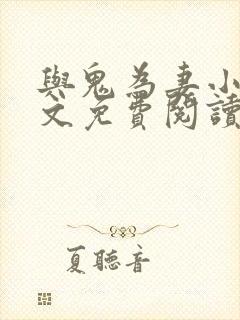 與鬼為妻小
文免費閱讀
夏聽音